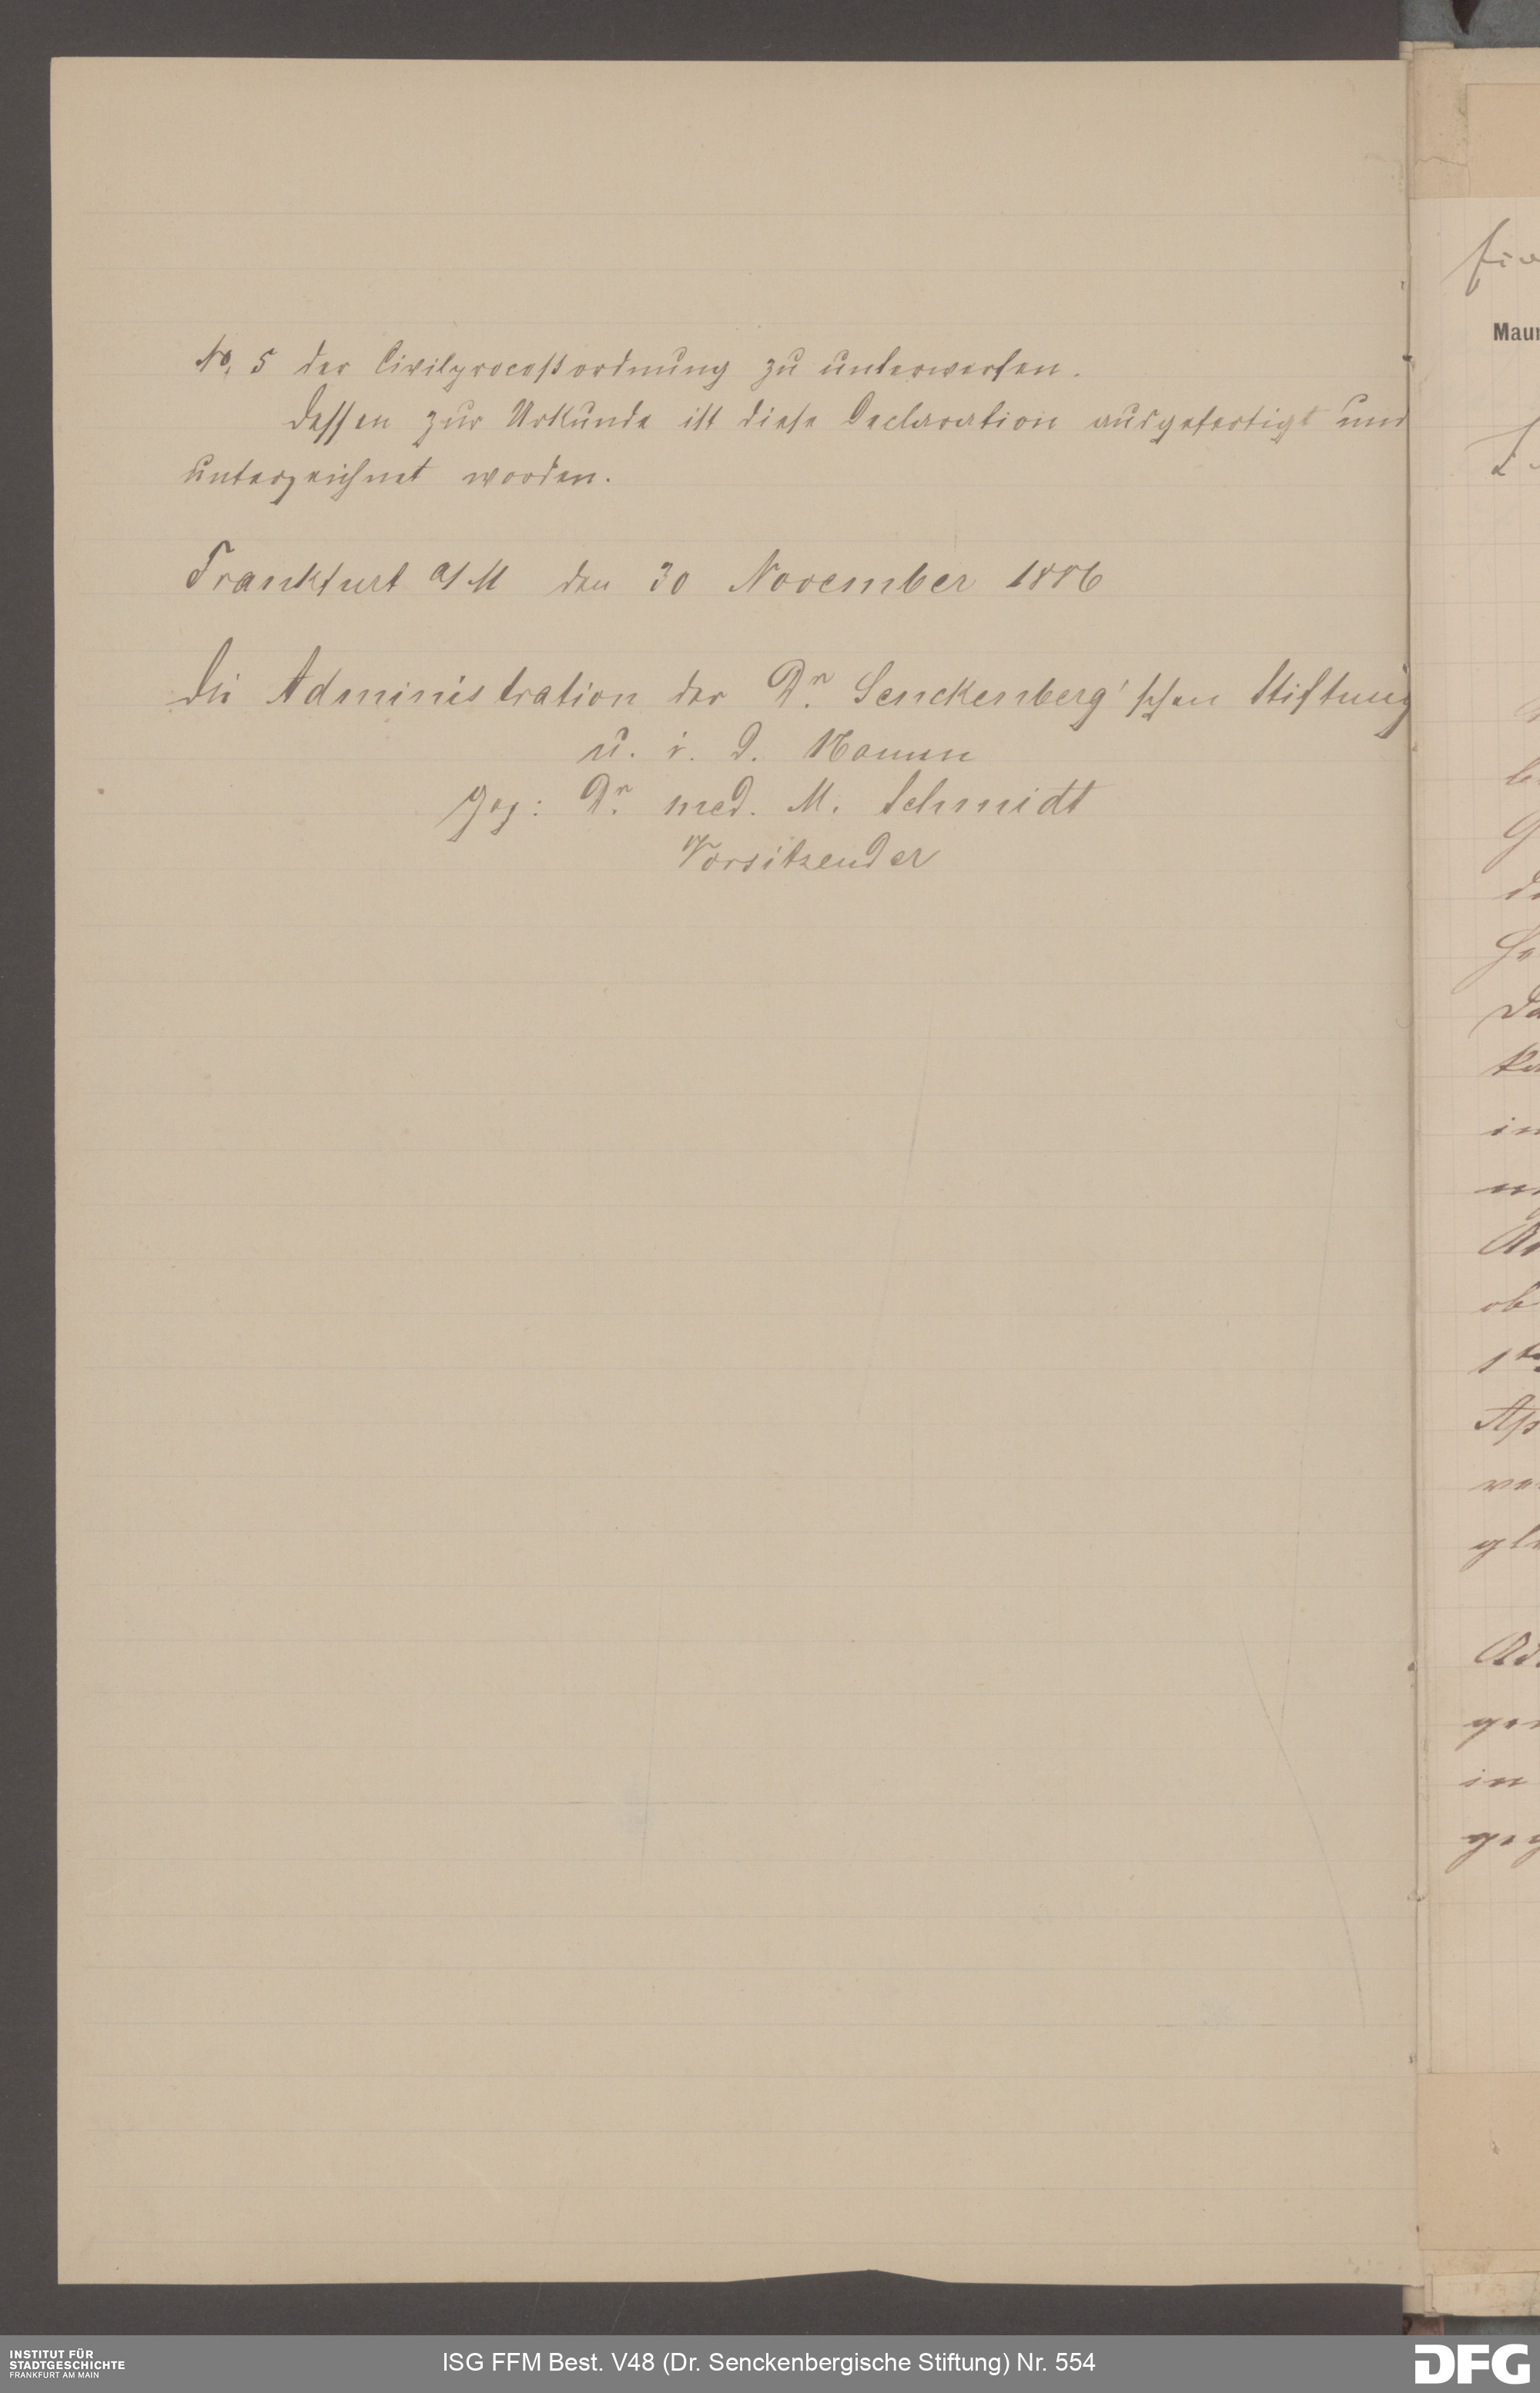 No. 5 der Civilprocoßordnung zu unterwerfen.
Dessen zur Urkunde ist diese Declaration ausgefertigt und
unterzeichnet worden.
Frankfurt a/M den 30 November 1886
Die Administration der Dr. Senckenberg'schen Stiftung
u. i. d. Namen
gez: Dr. med. M. Schmidt
Vorsitzender
Maur
INSTITUT FÜR
STADTGESCHICHTE
FRANKFURT AM MAIN
ISG FFM Best. V48 (Dr. Senckenbergische Stiftung) Nr. 554
DFG